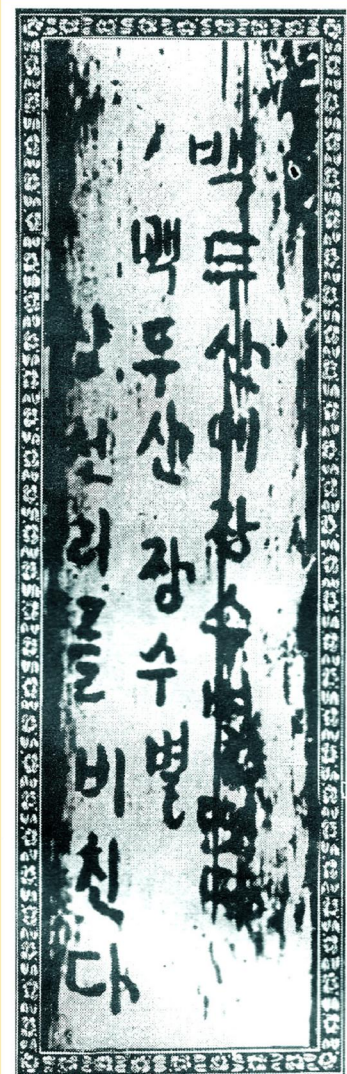 백두산에장수
백두산 장수별
삼천리를 비친다